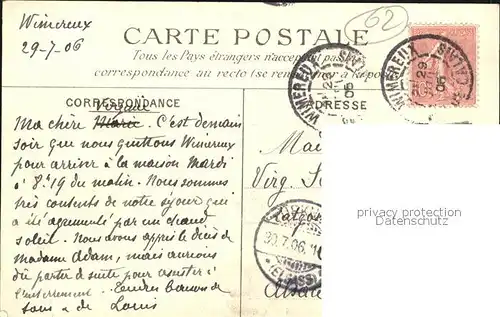 Wimereux
29-7-06
62
CARTE POSTALE
Tous les Pays étrangers n'acceptent pas
correspondance au recto (se ren à la Po
WIMEREUX CALAIS
29
06
CORRESPONDANCE
ADRESSE
Virginie
Ma chère Marie. C'est demain
soir que nous quittons Wimereux
pour arriver à la maison Mardi
à 8h19 du matin. Nous sommes
très contents de notre séjour qui
a été agrémenté par un chaud
soleil. Nous avons appris le décès de
madame Adam, mais aurions
dû partir de suite pour assister à
l'enterrement. Tendres baisers de
tous & de Louis
Ma
Virg.
30.7.06.
(ELSASS)
Alsace
privacy protection